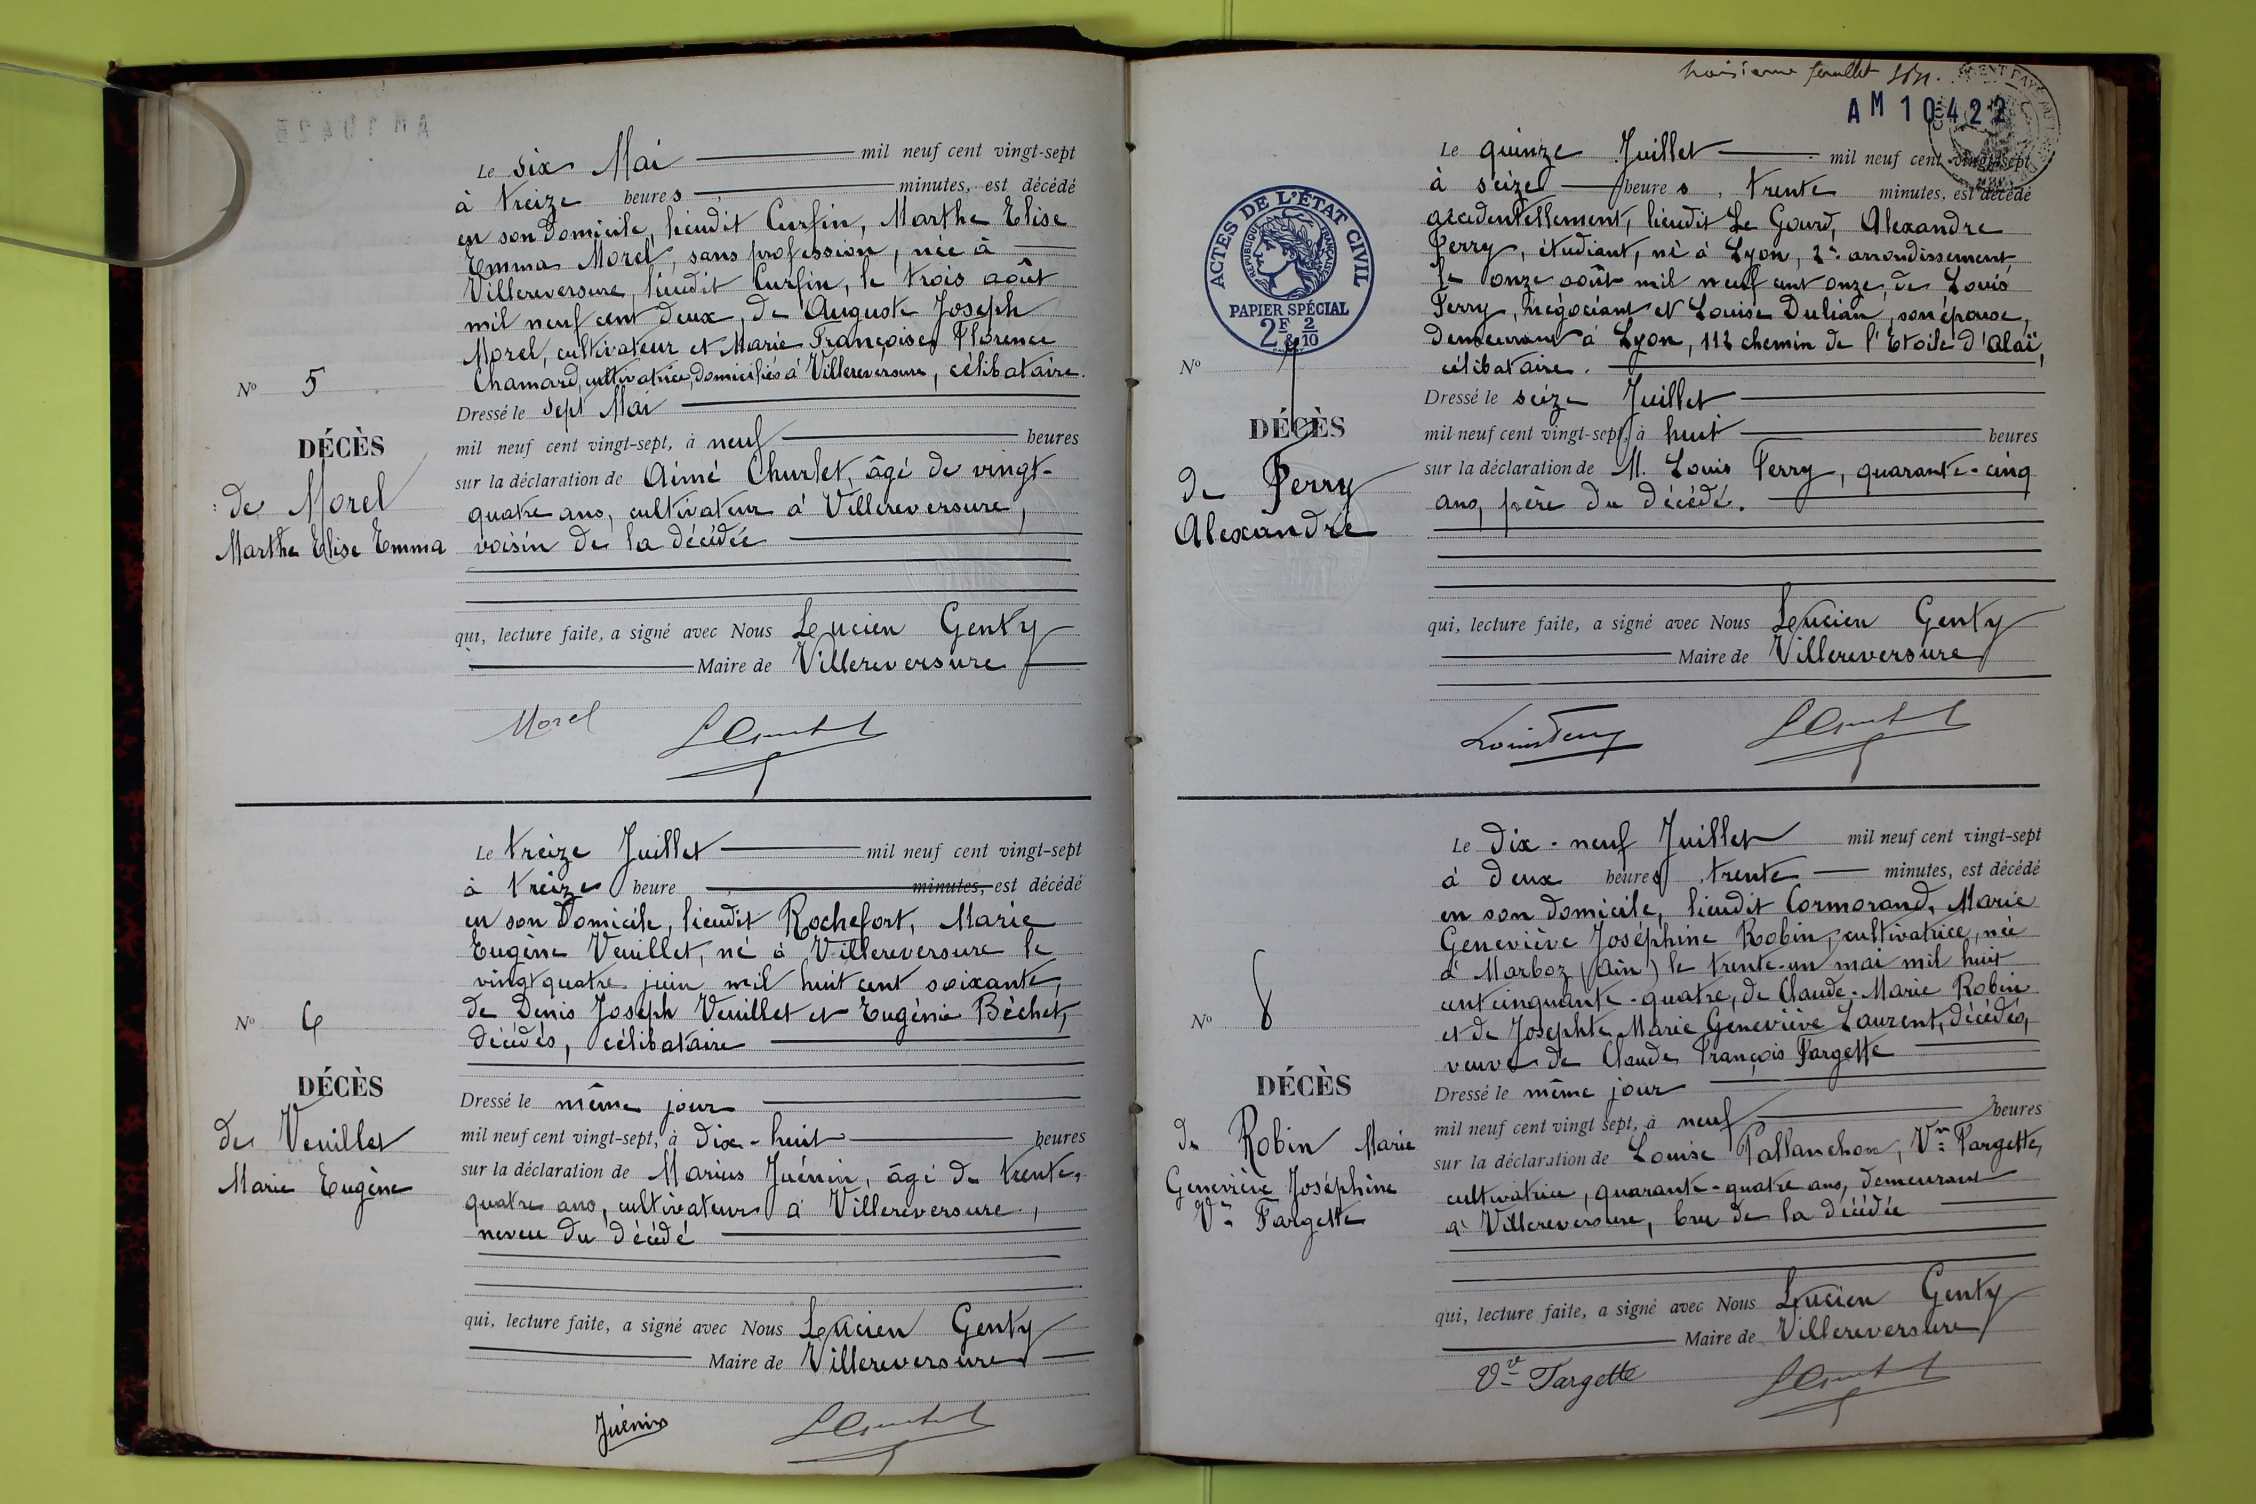 Le six Mai mil neuf cent vingt-sept
à treize heures minutes, est décédé
en son domicile, lieudit Curfin, Marthe Elise
Emma Morel, sans profession, née à
Villereversure, lieudit Curfin, le trois août
mil neuf cent deux, de Auguste Joseph
Morel, cultivateur et Marie Françoise Florence
Chamard, cultivatrice, domiciliés à Villereversure, célibataire.
Nº 5
Dressé le sept Mai
mil neuf cent vingt-sept, à neuf heures
DÉCÈS
sur la déclaration de Aimé Churlet, âgé de vingt-
de Morel
quatre ans, cultivateur à Villereversure,
Marthe Elise Emma
voisin de la décédée
qui, lecture faite, a signé avec Nous Lucien Genty
Maire de Villereversure
Morel
Le treize Juillet mil neuf cent vingt-sept
à treize heure minutes, est décédé
en son domicile, lieudit Rochefort, Marie
Eugène Veuillet, né à Villereversure le
vingt quatre juin mil huit cent soixante,
de Denis Joseph Veuillet et Eugénie Béchet,
Nº 6
décédés, célibataire
DÉCÈS
Dressé le même jour
de Veuillet
mil neuf cent vingt-sept, à dix-huit heures
sur la déclaration de Marius Juénin, âgé de trente-
Marie Eugène
quatre ans, cultivateur à Villereversure,
neveu du décédé
qui, lecture faite, a signé avec Nous Lucien Genty
Maire de Villereversure
Juénin
troisième feuillet
AM 10422
Le quinze Juillet mil neuf cent vingt-sept
à seize heures, trente minutes, est décédé
accidentellement, lieudit Le Gourd, Alexandre
Ferry, étudiant, né à Lyon, 2e arrondissement
le onze août mil neuf cent onze, de Louis
Ferry, négociant et Louise Dulian, son épouse,
demeurant à Lyon, 112 chemin de l'Etoile d'Alaï,
célibataire.
ACTES DE L'ÉTAT CIVIL
RÉPUBLIQUE FRANÇAISE
PAPIER SPÉCIAL
2F & 2/10
Nº 7
Dressé le seize Juillet
DÉCÈS
mil neuf cent vingt-sept, à huit heures
de Ferry
sur la déclaration de M. Louis Ferry, quarante-cinq
Alexandre
ans, père du décédé.
qui, lecture faite, a signé avec Nous Lucien Genty
Maire de Villereversure
Louis Ferry
Le dix-neuf Juillet mil neuf cent vingt-sept
à deux heures trente minutes, est décédé
en son domicile, lieudit Cormorand, Marie
Geneviève Joséphine Robin, cultivatrice, née
à Marboz (Ain) le trente-un mai mil huit
cent cinquante-quatre, de Claude-Marie Robin
et de Josephte Marie Geneviève Laurent, décédés,
veuve de Claude François Fargette
Nº 8
DÉCÈS
Dressé le même jour
mil neuf cent vingt sept, à neuf heures
de Robin Marie
sur la déclaration de Louise Pallanchon, Vve Fargette,
Geneviève Joséphine
cultivatrice, quarante-quatre ans, demeurant
Vve Fargette
à Villereversure, bru de la décédée
qui, lecture faite, a signé avec Nous Lucien Genty
Maire de Villereversure
Vve Fargette